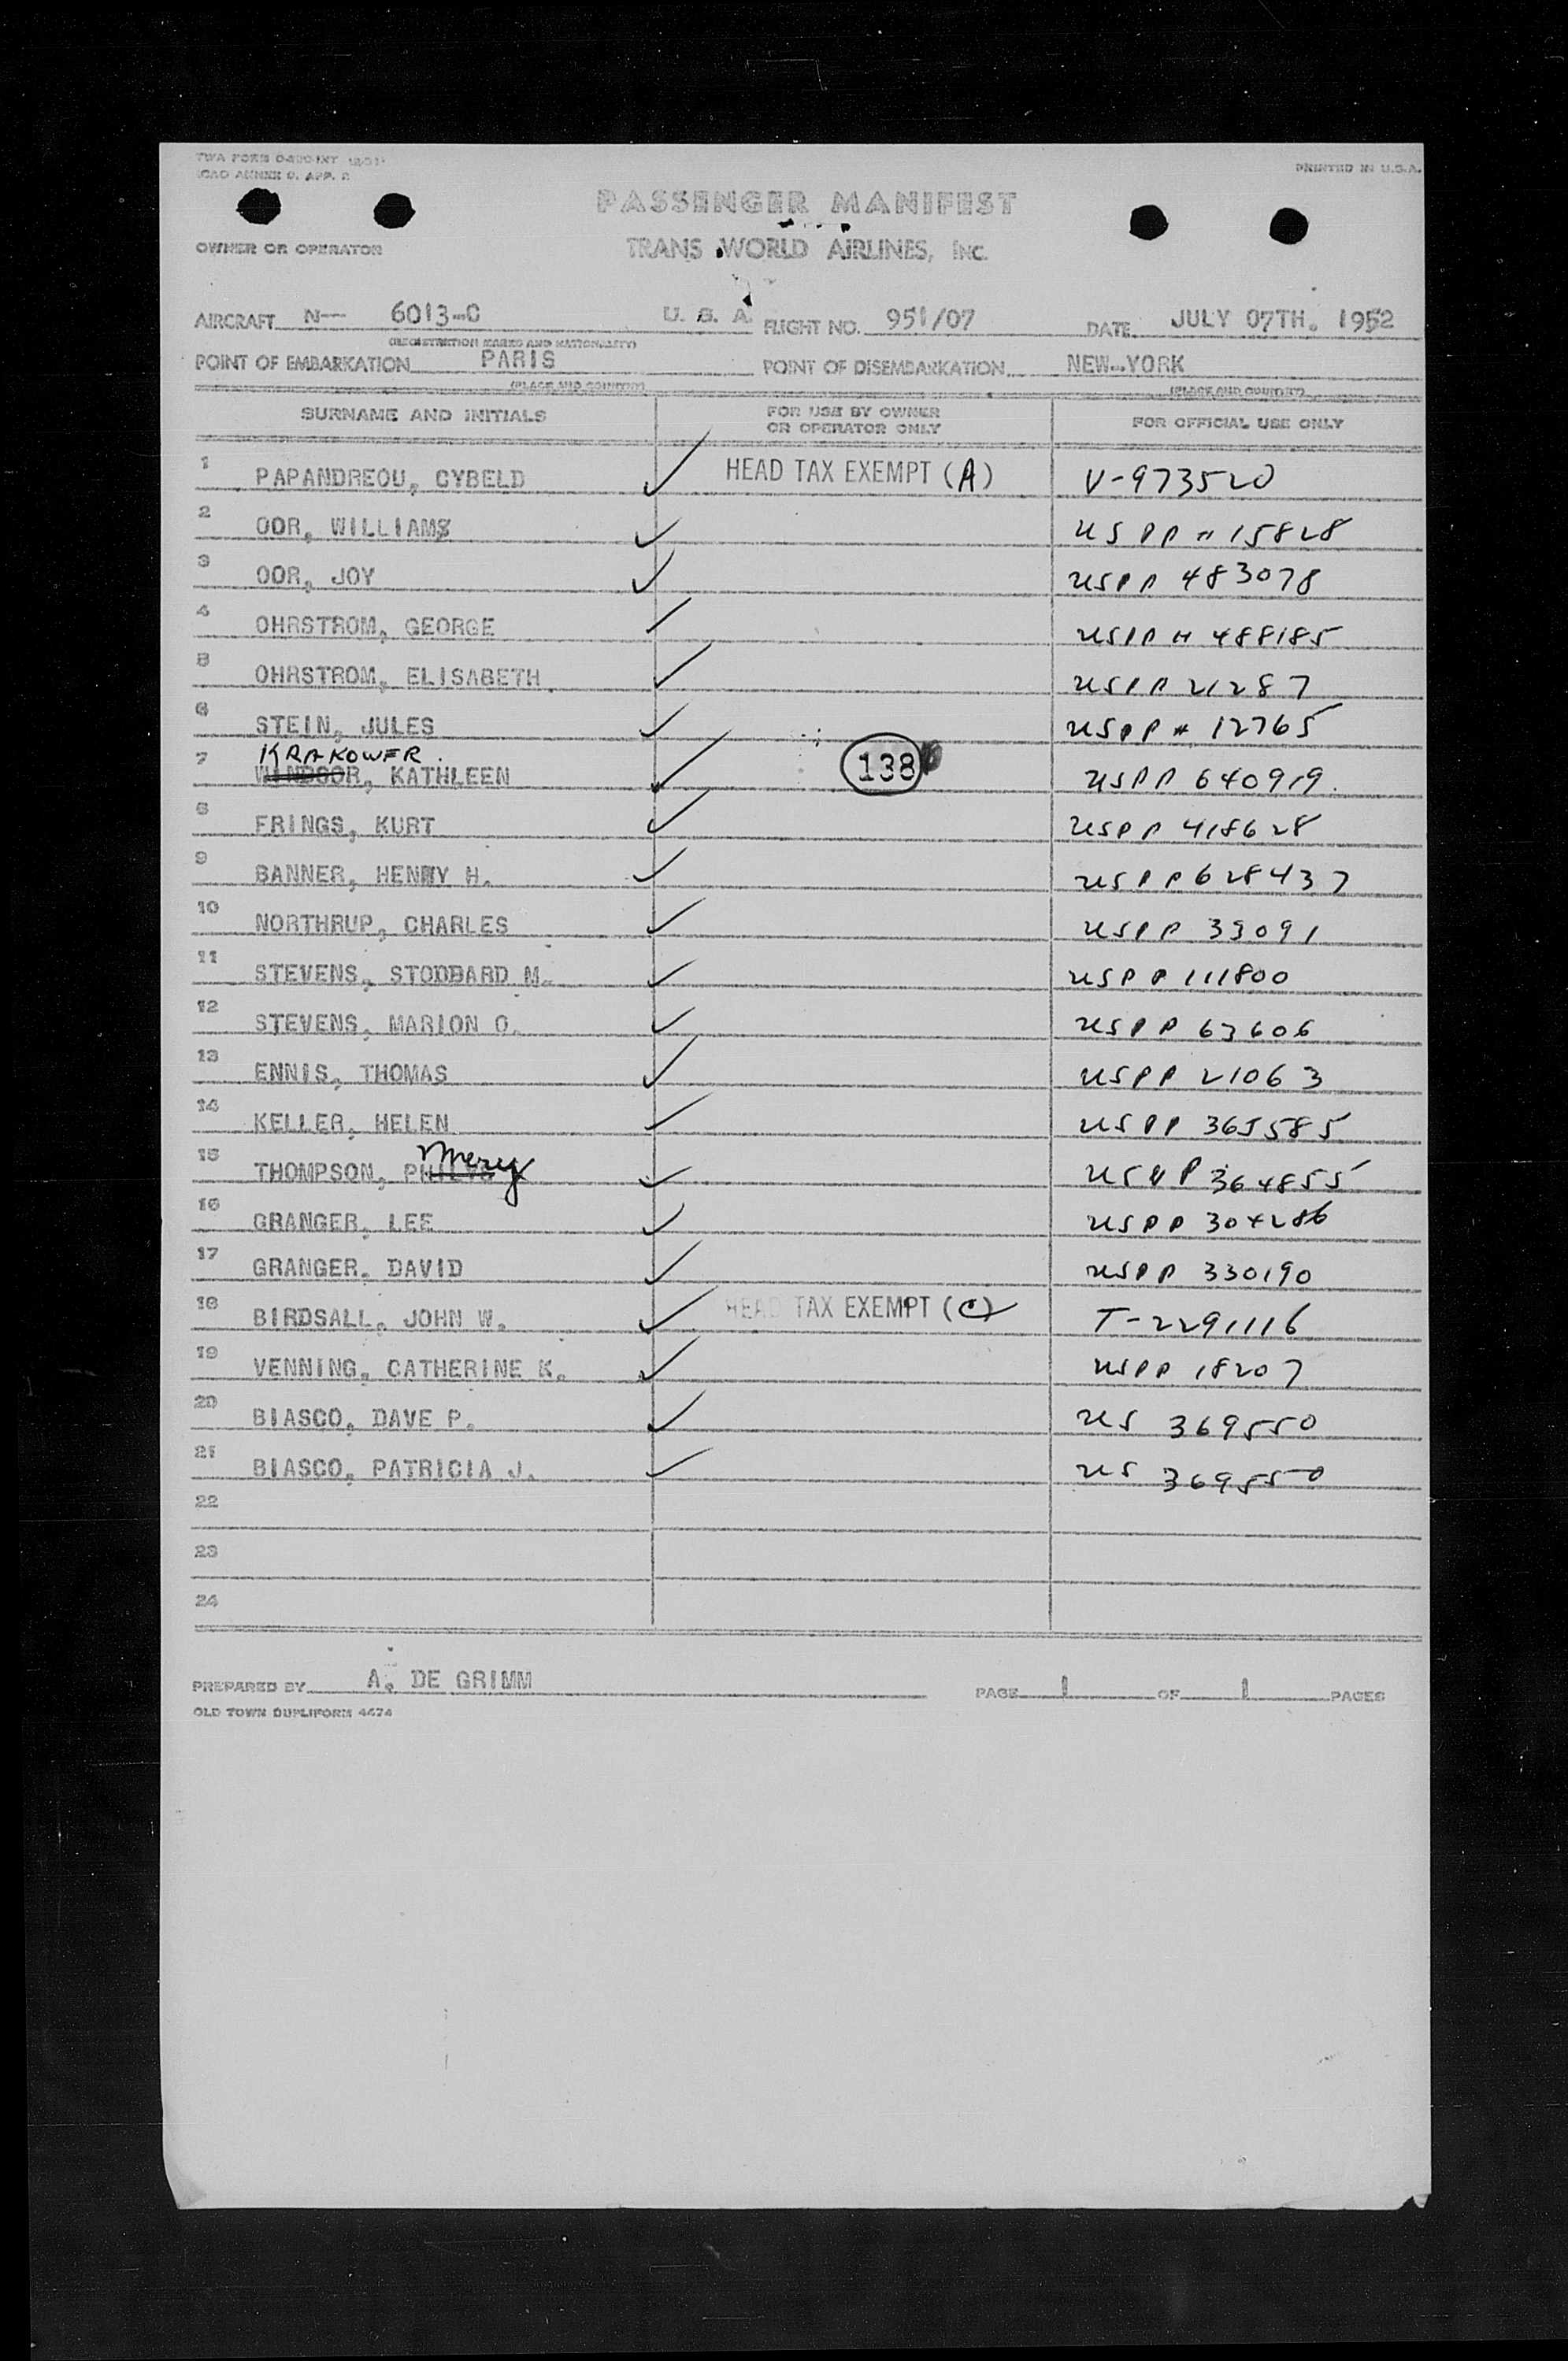 PRINTED IN U.S.A.
PASSENGER MANIFEST
OWNER OR OPERATOR TRANS WORLD AIRLINES, INC.
AIRCRAFT N-- 6013-C U. S. A. FLIGHT NO. 951/07 DATE JULY 07TH. 1952
(REGISTRATION MARKS AND NATIONALITY)
POINT OF EMBARKATION PARIS POINT OF DISEMBARKATION NEW-YORK
(PLACE AND COUNTRY) (PLACE AND COUNTRY)
SURNAME AND INITIALS FOR USE BY OWNER OR OPERATOR ONLY FOR OFFICIAL USE ONLY
1 PAPANDREOU, CYBELD ✓ HEAD TAX EXEMPT (A) V-973520
2 OOR, WILLIAMS ✓ USPP # 15828
3 OOR, JOY ✓ USPP 483078
4 OHRSTROM, GEORGE ✓ USPP # 488185
5 OHRSTROM, ELISABETH ✓ USPP 21287
6 STEIN, JULES ✓ USPP # 12765
KRAKOWER.
7 WINDSOR, KATHLEEN ✓ 138 USPP 640919.
8 FRINGS, KURT ✓ USPP 418628
9 BANNER, HENRY H. ✓ USPP 628437
10 NORTHRUP, CHARLES ✓ USPP 33091
11 STEVENS, STODDARD M. ✓ USPP 111800
12 STEVENS, MARION O. ✓ USPP 63606
13 ENNIS, THOMAS ✓ USPP 21063
14 KELLER, HELEN ✓ USPP 365585
Mary
15 THOMPSON, ✓ USPP 364855
16 GRANGER, LEE ✓ USPP 304286
17 GRANGER, DAVID ✓ USPP 330190
18 BIRDSALL, JOHN W. ✓ HEAD TAX EXEMPT (C) T-2291116
19 VENNING, CATHERINE K. ✓ USPP 18207
20 BIASCO, DAVE P. ✓ US 369550
21 BIASCO, PATRICIA J. ✓ US 369550
22
23
24
PREPARED BY A. DE GRIMM PAGE 1 OF 1 PAGES
OLD TOWN DUPLIFORM 4474